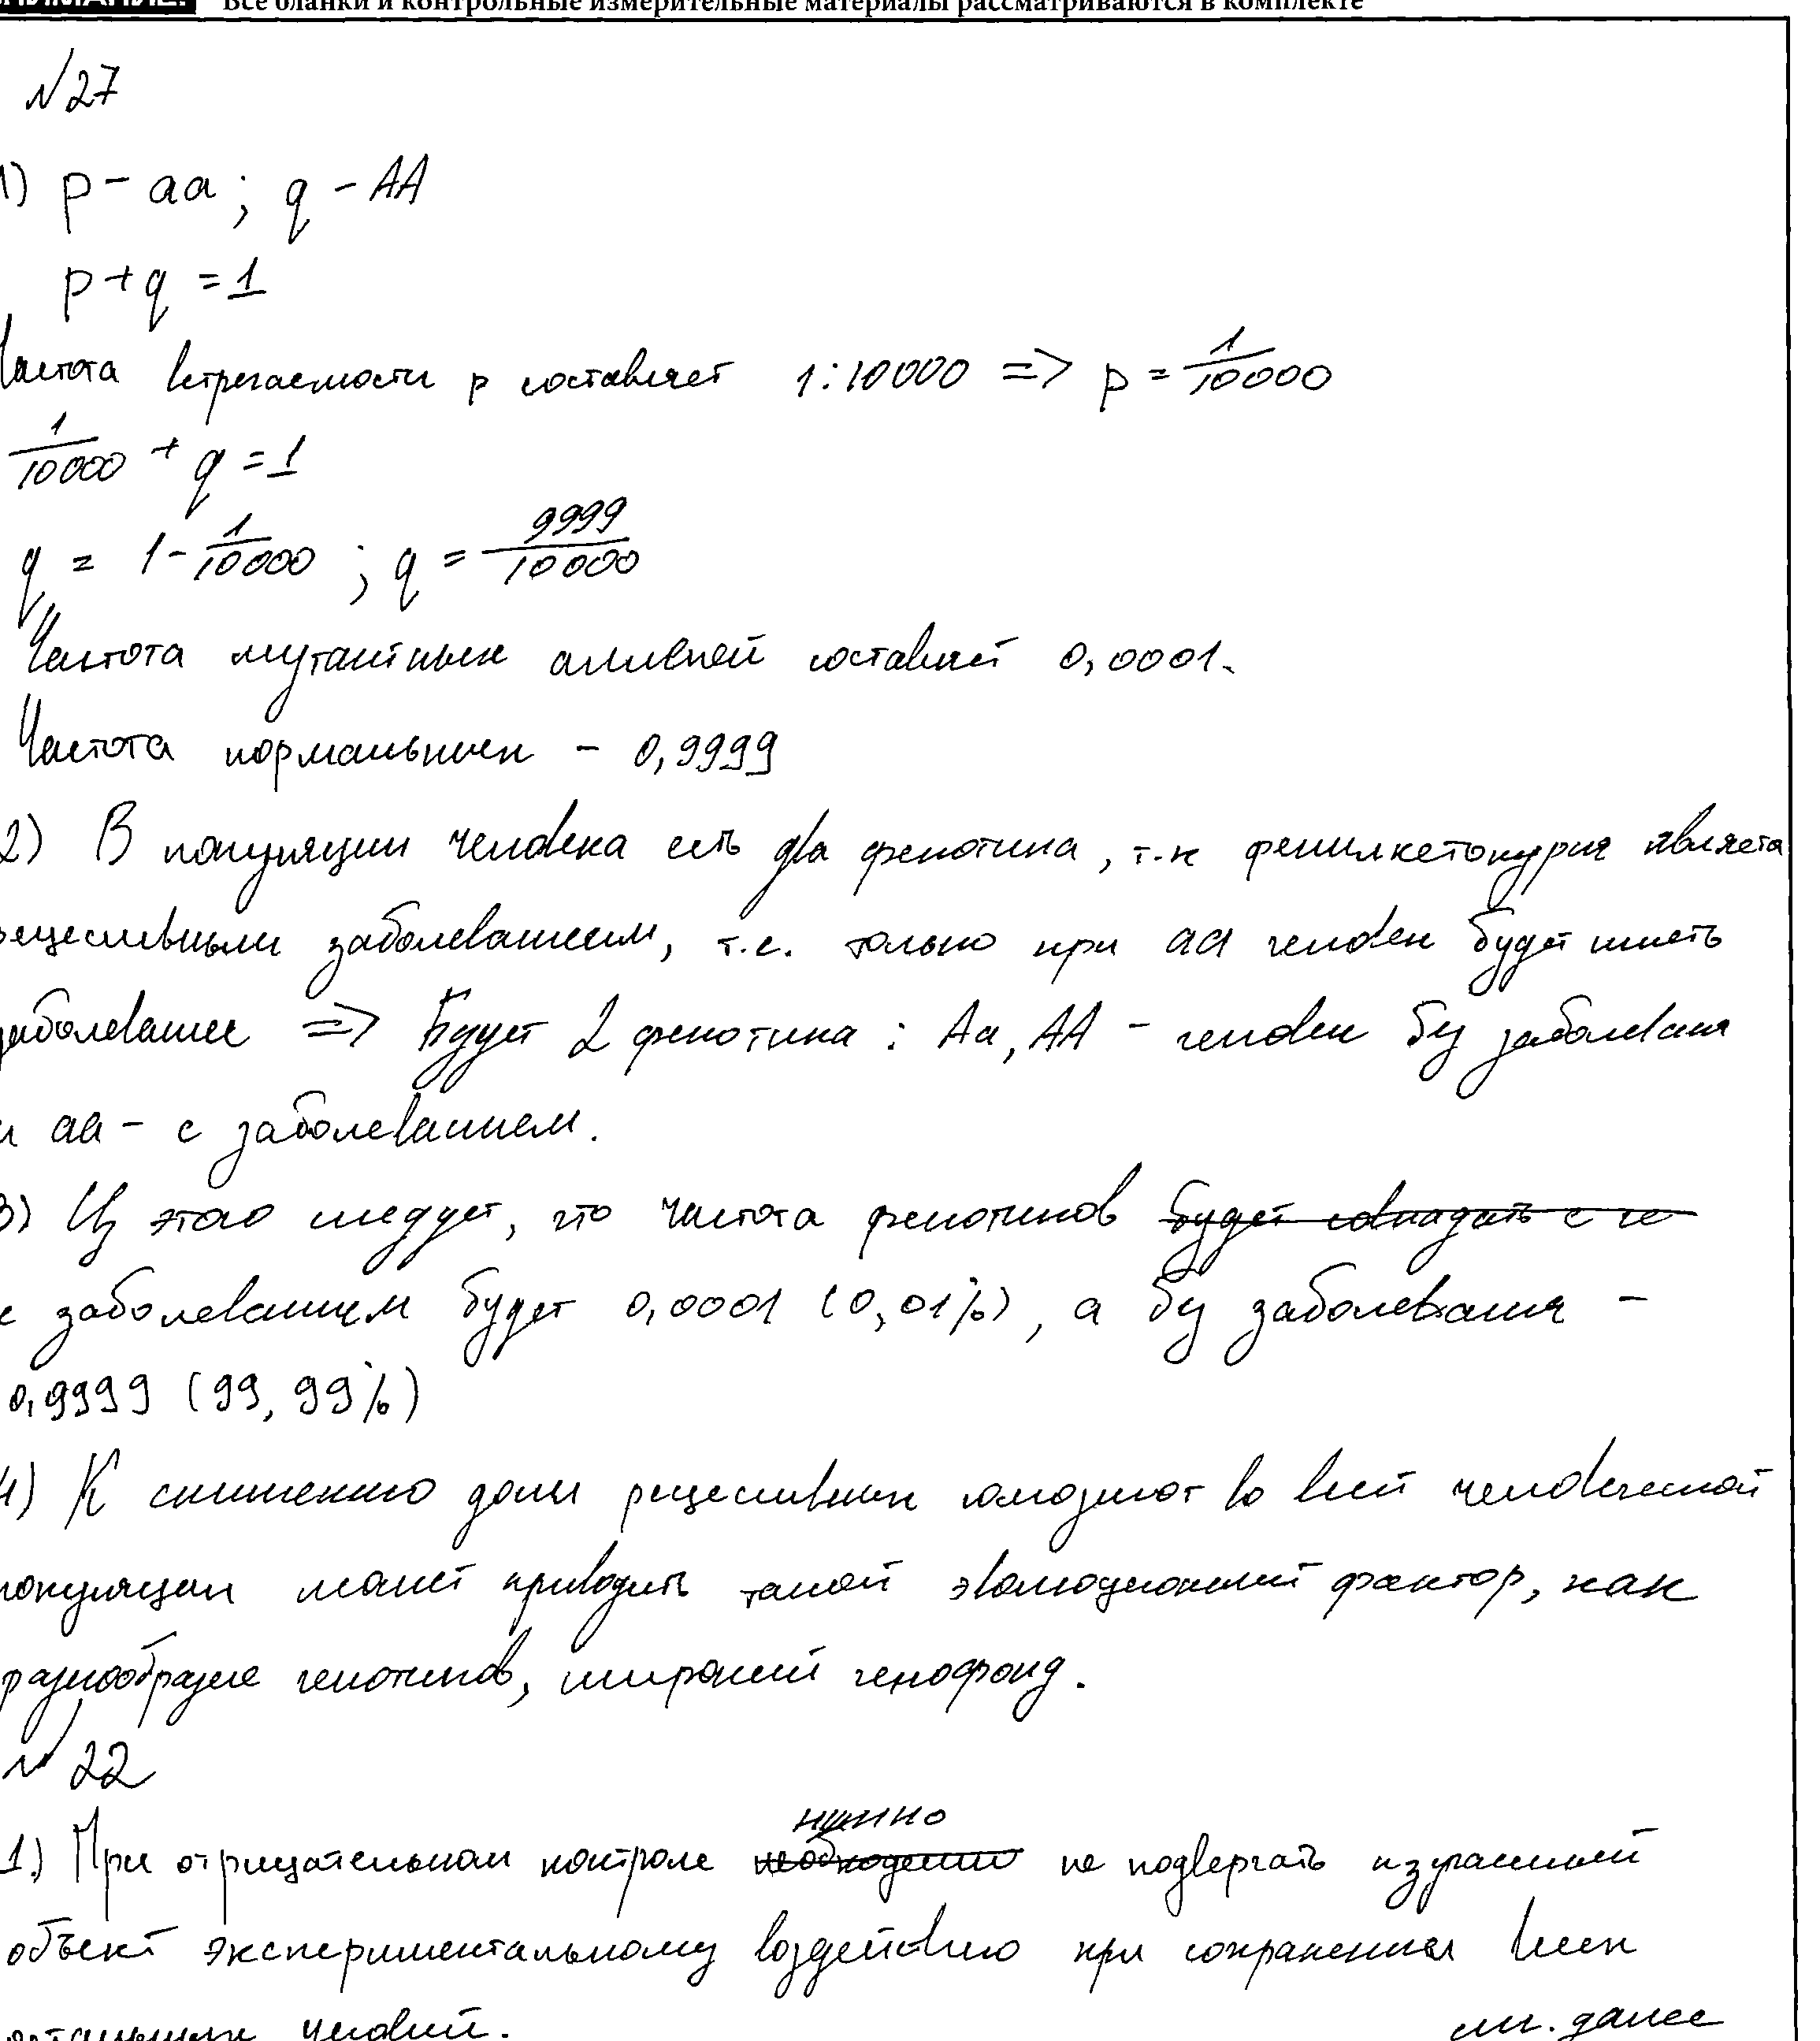 ВНИМАНИЕ! Все бланки и контрольные измерительные материалы рассматриваются в комплекте
№27
1) p - aa ; q - AA
p + q = 1
Частота встречаемости p составляет 1:10000 => p = 1/10000
1/10000 + q = 1
q = 1 - 1/10000 ; q = 9999/10000
Частота мутантных аллелей составляет 0,0001.
Частота нормальных - 0,9999
2) В популяции человека есть два фенотипа, т.к фенилкетонурия является
рецессивным заболеванием, т.е. только при aa человек будет иметь
заболевание => Будет 2 фенотипа : Aa, AA - человек без заболевания
и aa - с заболеванием.
3) Из этого следует, что частота фенотипов будет совпадать с ге
с заболеванием будет 0,0001 (0,01%), а без заболевания -
0,9999 (99,99%)
4) К снижению доли рецессивных гомозигот во всей человеческой
популяции может приводить такой эволюционный фактор, как
разнообразие генотипов, широкий генофонд.
№ 22
нужно
1.) При отрицательном контроле необходимо не подвергать изучаемый
объект экспериментальному воздействию при сохранении всех
остальных условий.
см. далее